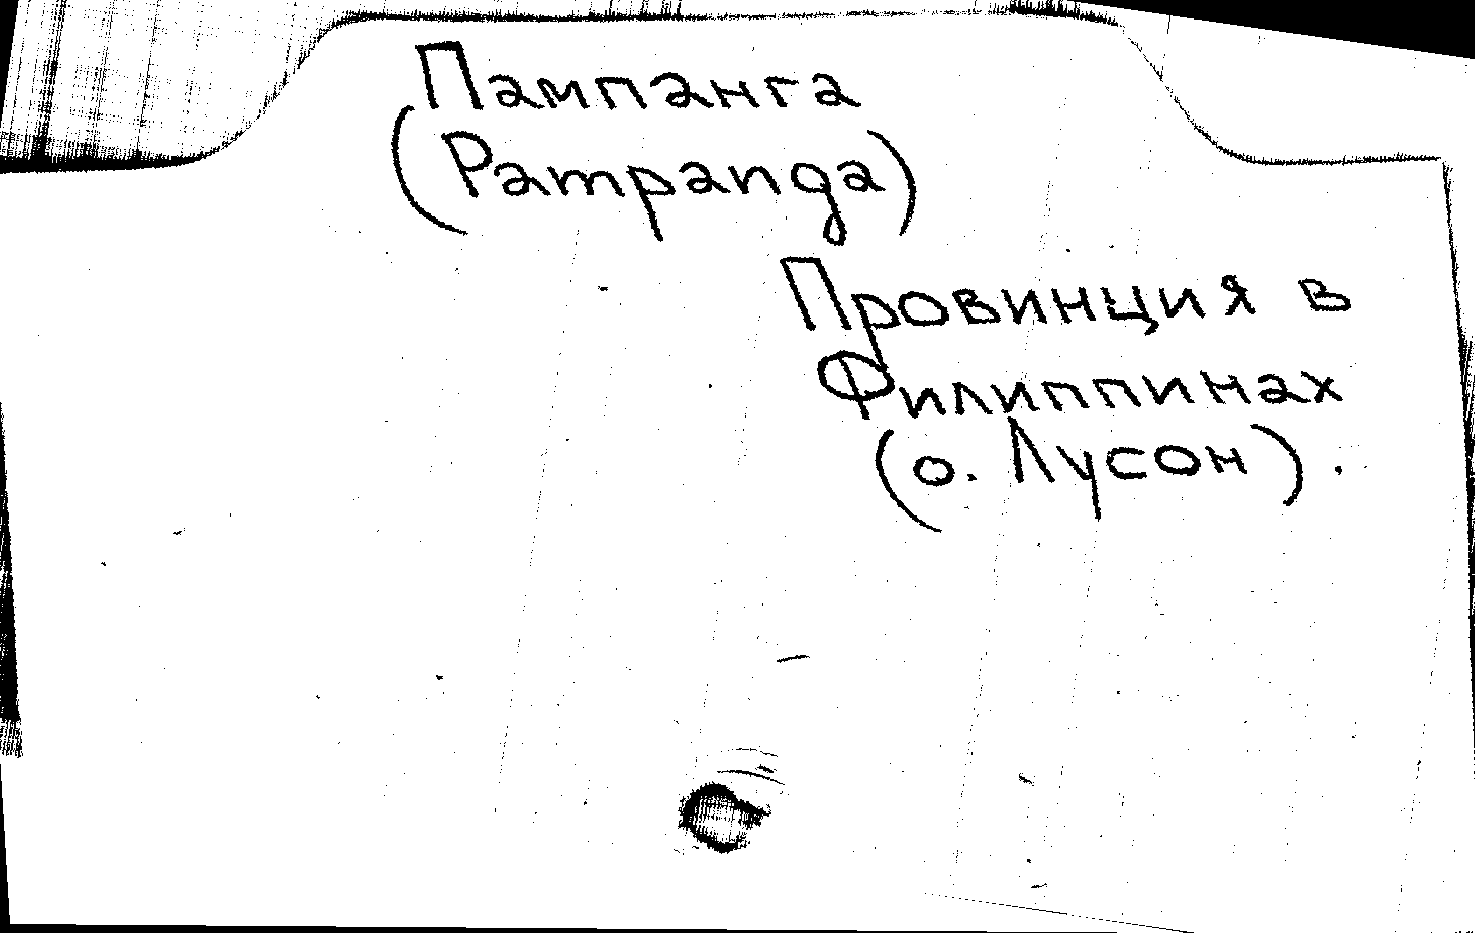 Пампанга
(Pampanga)
Провинция в
Филиппинах
(о. Лусон).